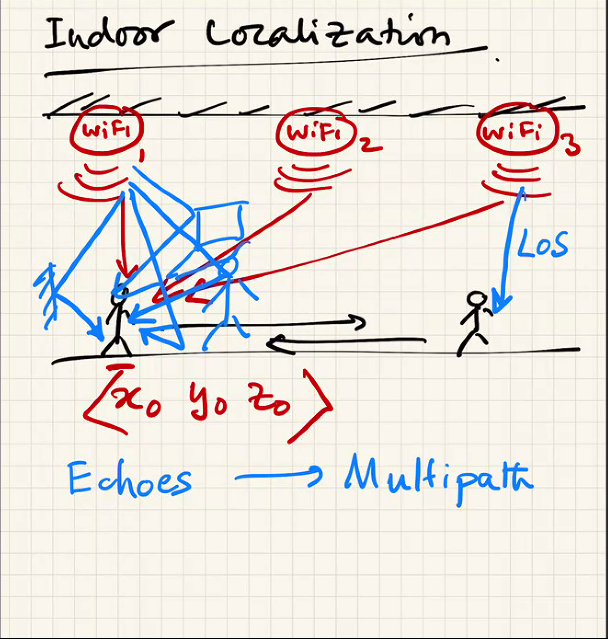 Indoor Localization
WiFi 1 WiFi 2 WiFi 3
LOS
⟨x₀ y₀ z₀⟩
Echoes → Multipath